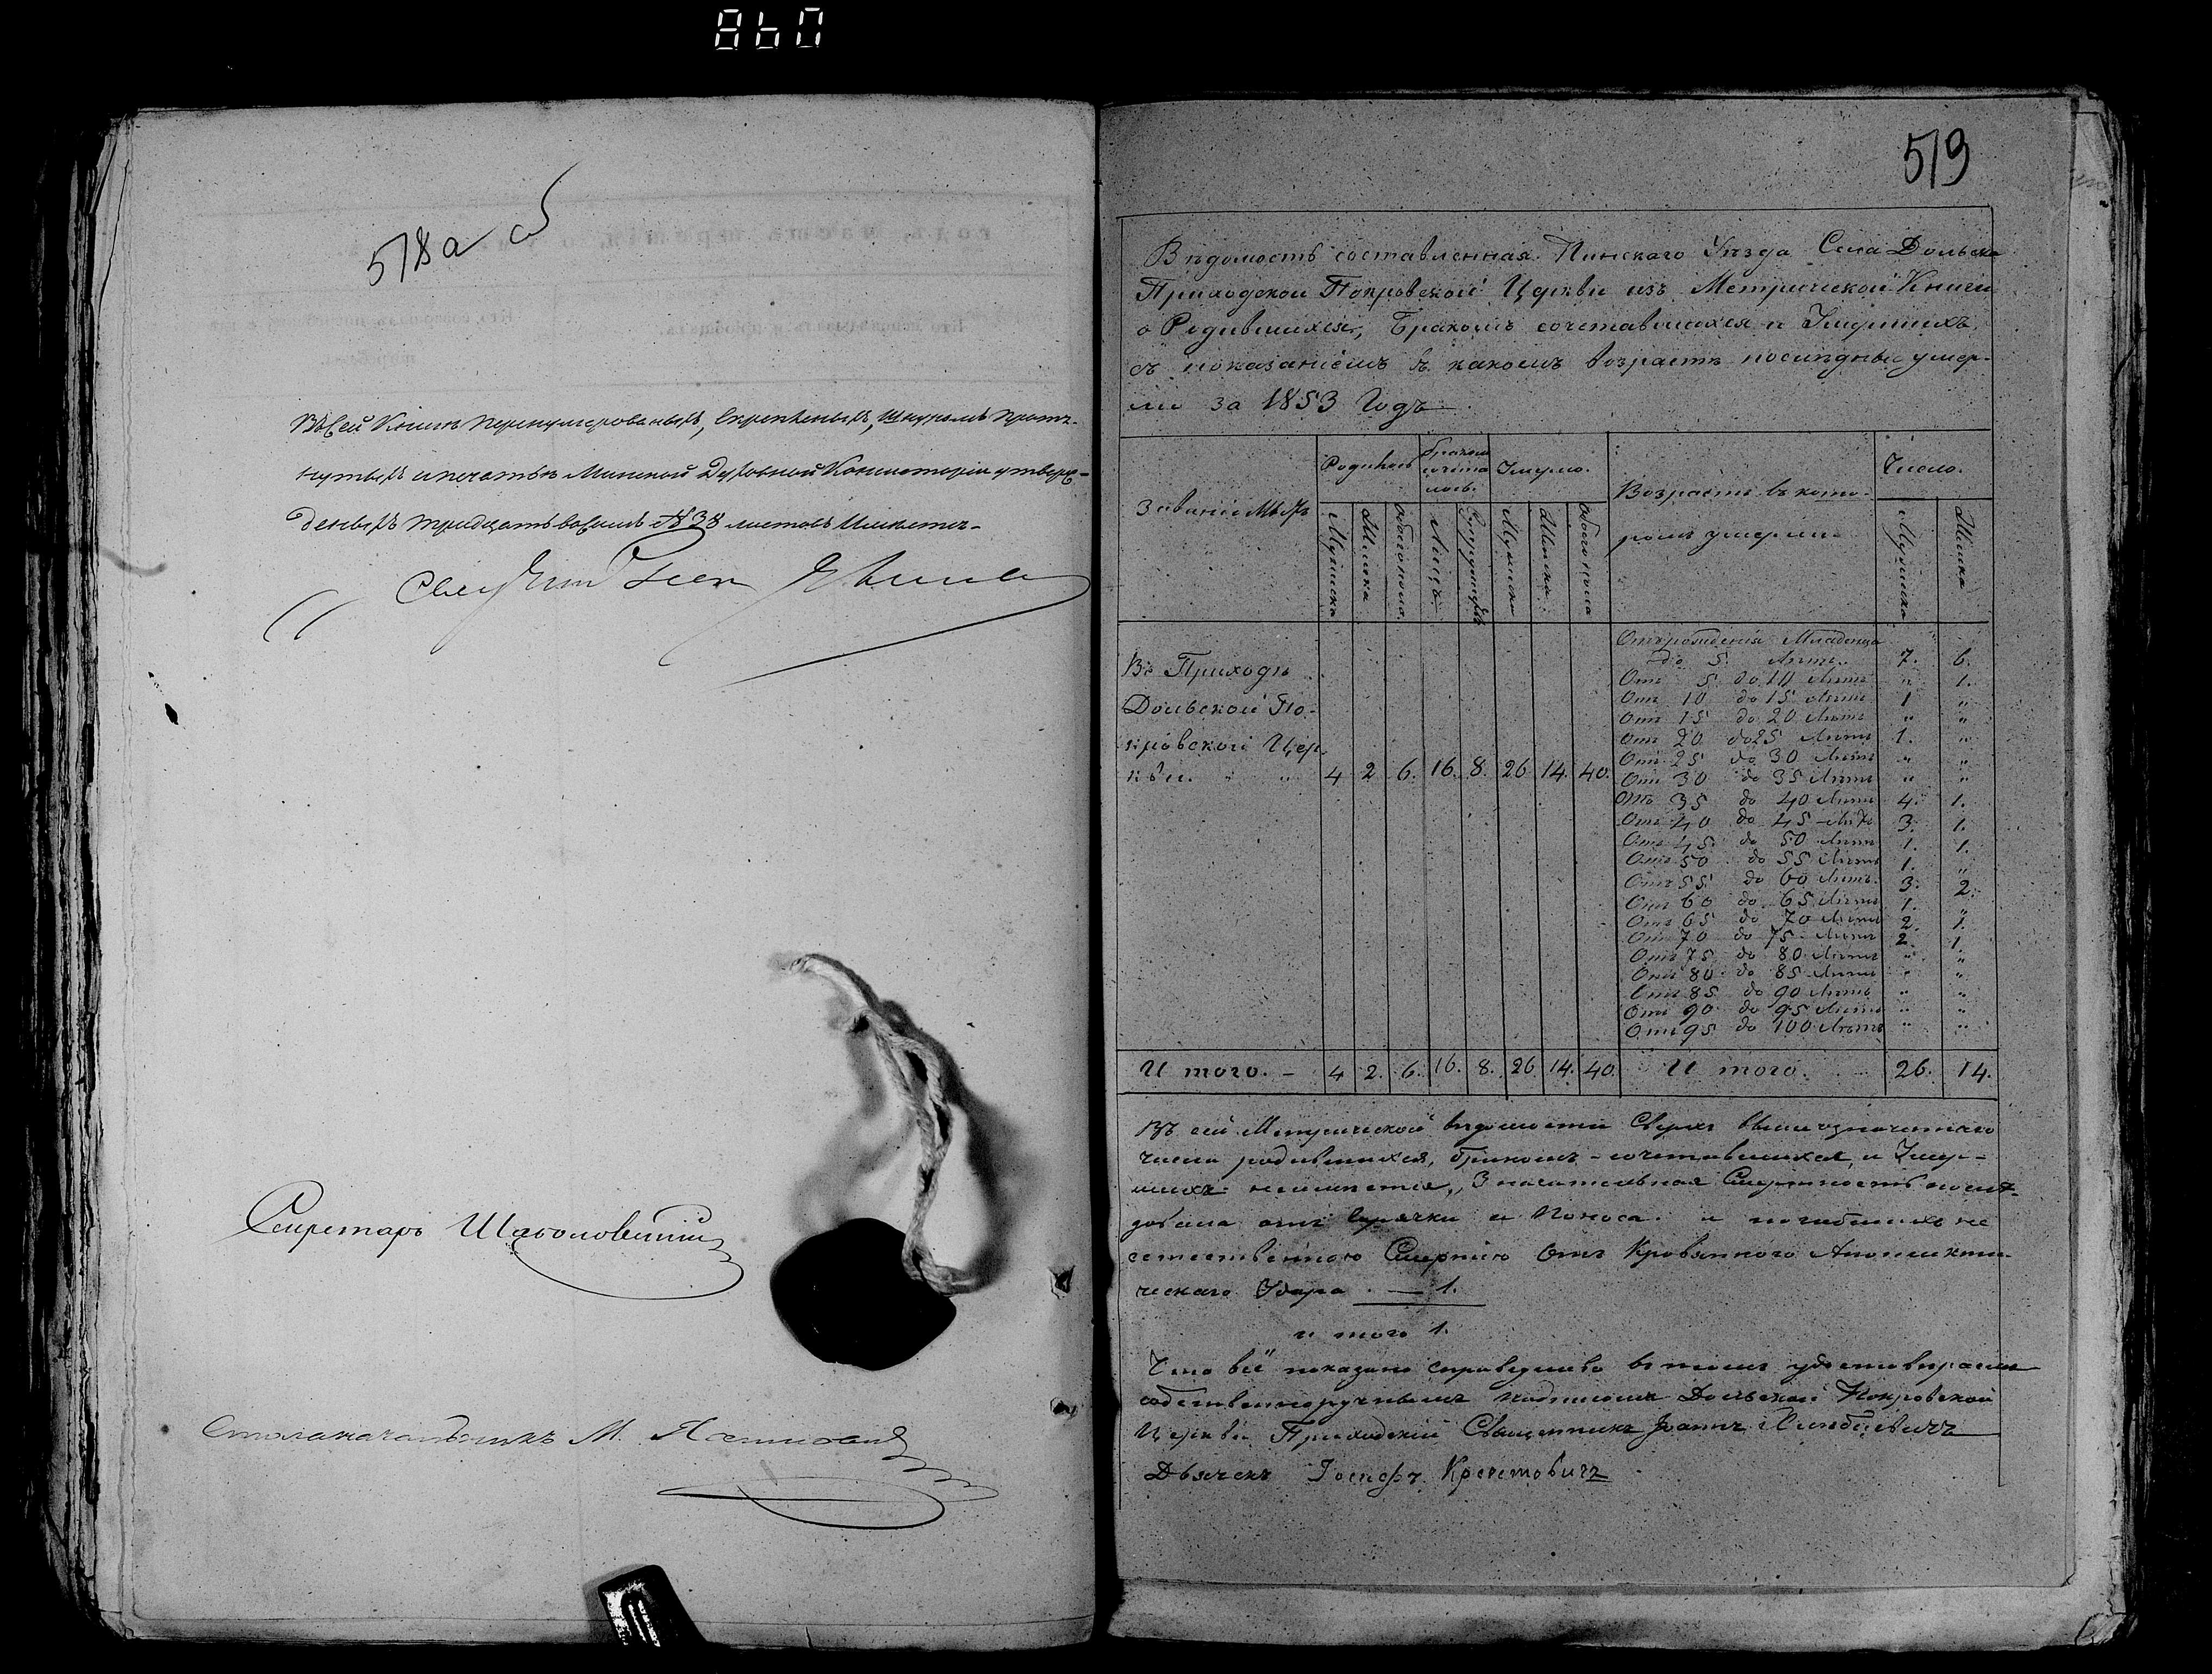 860
578а об
Въ сей Книгѣ перенумерованыхъ, скрепленыхъ, шнуромъ протя-
нутыхъ и печатью Минской Духовной Консисторіи утверж-
деныхъ тридцать восемь № 38 листовъ Имѣется.
Секретарь
Столоначальникъ М.
519
Вѣдомость составленная Пинскаго Уѣзда Села Дольска
Приходской Покровской Церкви изъ Метрической Книги
о Родившихся, Бракомъ сочетавшихся и Умершихъ,
съ показаніемъ въ какомъ возрастѣ послѣдные умер-
ли за 1853 Годъ
Званіе Мѣстъ
Родилось
Бракомъ сочета лось.
Умерло.
Возрастъ въ кото-
ромъ умерли
Число.
Мужеска
Женска
Обоего пола
Лицъ
Супружествъ
Мужеска
Женска
Обоего пола
Мужеска
Женска
Въ Приходѣ
Дольской По-
кровской Цер
кви. " " 4 2 6. 16. 8. 26 14. 40.
Отъ рожденія Младенца
до 5. Лѣтъ. 7. 6.
Отъ 5 до 10 Лѣтъ " 1.
Отъ 10 до 15 Лѣтъ 1 "
Отъ 15 до 20 Лѣтъ " "
Отъ 20 до 25 Лѣтъ 1. "
Отъ 25 до 30 Лѣтъ " "
Отъ 30 до 35 Лѣтъ " "
Отъ 35 до 40 Лѣтъ 4. 1.
Отъ 40 до 45 Лѣтъ 3. 1.
Отъ 45 до 50 Лѣтъ 1. 1.
Отъ 50 до 55 Лѣтъ 1. "
Отъ 55 до 60 Лѣтъ. 3. 2.
Отъ 60 до 65 Лѣтъ 1. "
Отъ 65 до 70 Лѣтъ 2. 1.
Отъ 70 до 75 Лѣтъ 2. 1.
Отъ 75 до 80 Лѣтъ " "
Отъ 80 до 85 Лѣтъ " "
Отъ 85 до 90 Лѣтъ " "
Отъ 90 до 95 Лѣтъ " "
Отъ 95 до 100 Лѣтъ " "
И того. – 4 2. 6. 16. 8. 26. 14. 40. И того. 26. 14.
Въ сей Метрической вѣдомости Сверхъ вышеозначеннаго
числа родившихся, бракомъ-сочетавшихся, и Умер-
шихъ неимѣется, Значительная Смертность послѣ-
довала отъ Горячки и Поноса. и погибшихъ не
стественною Смертію Отъ Кровяного Апоплекти-
ческаго Удара . — 1.
и того 1.
Что всё показано справедливо въ томъ удостовѣряемъ
собственноручнымъ подписомъ Дольской Покровской
Церкви Приходскій Священникъ Іоаннъ
Дьячекъ Іосифъ Кречетовичъ